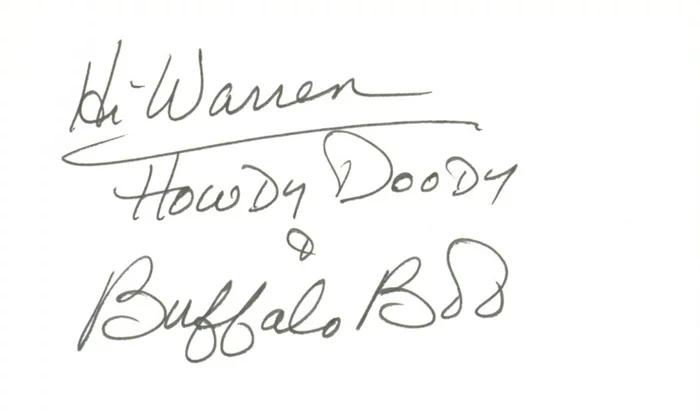 Hi-Warren
Howdy Doody
&
Buffalo Bob